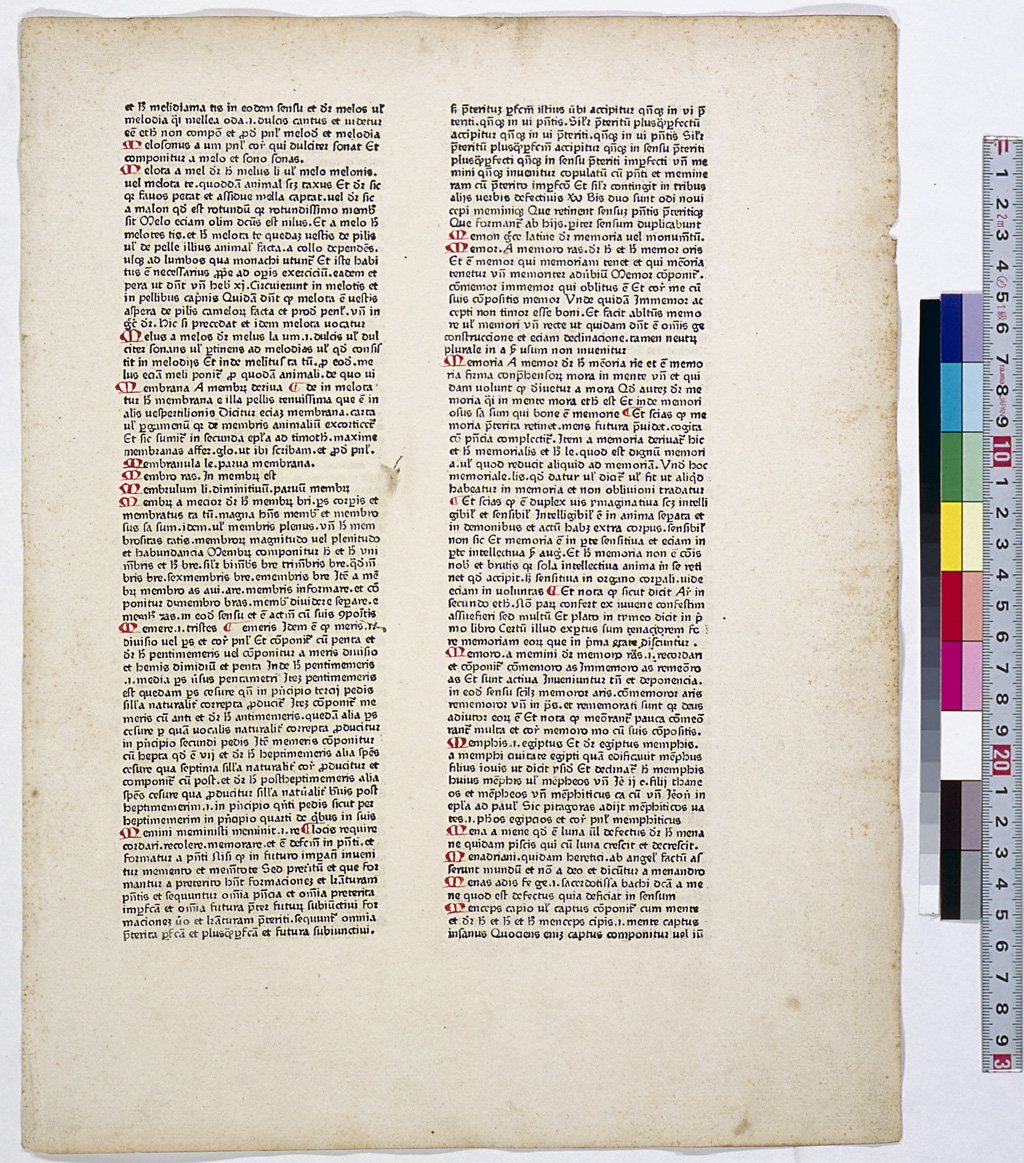 et hꝫ melidiama tis in eodem sensu et dr̄ melos ul̄
melodia q̄i mellea oda.i.dulcis cantus et uidetur
eē etħ non compō et ꝓd̄ pnl̄ melod̄ et melodia
Melosonus a um pnl̄ cor̄ qui dulciter sonat Et
componitur a melo et sono sonas.
Melota a mel dr̄ hꝫ melus li ul̄ melo melonis.
uel melota te.quoddā animal scꝫ taxus Et dr̄ sic
qꝛ fauos petat et assidue mella captat.uel dr̄ sic
a malon qd̄ est rotundū qꝛ rotundissimo membr̄
sit Melo eciam olim dcūs est nilus. Et a melo hꝫ
melotes tis.et hꝫ melota te quedaꝫ uestis de pilis
ul̄ de pelle illius animal̄ facta.a collo dependēs.
usqꝫ ad lumbos qua monachi utunt̄ Et iste habi
tus ē necessarius ꝓpe ad opis exerciciū.eadem et
pera ut dnt̄ vn̄ heb̄ xj.Circuierunt in melotis et
in pellibus capnis Quidā dnt̄ qꝛ melota ē uestis
aspera de pilis cameloꝝ facta et prod̄ penl̄.vn̄ in
gc̄ dr̄. hic si precedat et idem melota vocatur
Melus a melos dr̄ melus la um.i.dulcis ul̄ dul
citer sonans ul̄ ptinens ad melodias ul̄ qd̄ consis
tit in melodijs Et inde melitus ta tū.ꝓ eod̄.me
lus eciā meli ponit̄ ꝓ quodā animali.de quo ui
Membrana A membꝝ deriua ¶ de in melota
tur hꝫ membrana e illa pellis tenuissima que ē in
alis uespertilionis Dicitur eciaꝫ membrana.carta
ul̄ pgamenū qꝛ de membris animaliū excorticet̄
Et sic sumit̄ in secunda epl̄a ad timotħ.maxime
membranas affer.glo.ut ibi scribam.et ꝓd̄ pnl̄.
Membranula le.parua membrana.
Membro ras. In membꝝ est
Membrulum li.diminitiuū.paruū membꝝ
Membꝝ a mecior dr̄ hꝫ membꝝ bri.ps corpis et
membratus ta tū.magna hn̄s memb̄ et membro
sus sa sum.idem.ul̄ membris plenus.vn̄ hꝫ mem
brositas tatis.membroꝝ magnitudo uel plenitudo
et habundancia Membꝝ componitur hꝫ et hꝫ vni
m̄bris et hꝫ bre.sil̄r bimb̄is bre trimb̄ris bre.qd̄im̄
bris bre.sexmembris bre.emembris bre Itē a mē
bꝝ membro as aui.are.membris informare.et cō
ponitur dimembro bras.memb̄ diuidere separe.e
memb̄ ras.in eod̄ sensu et ē actiū cū suis 9positis
Memere.i.tristes ¶ emeris Idem ē qꝛ meris.
diuisio uel ps et cor̄ pnl̄ Et cōponit̄ cū penta et
dr̄ hꝫ pentimemeris uel cōponitur a meris diuisio
et hemis dimidiū et penta Inde hꝫ pentimemeris
.i.media ps ūsus pentametri Iteꝫ pentimemeris
est quedam ps cesure qn̄ in pn̄cipio tercij pedis
sill̄a naturalit̄ correpta ꝓducit̄ Iteꝫ cōponit̄ me
meris cū anti et dr̄ hꝫ antimemeris.quedā alia ps
cesure p quā vocalis naturalit̄ correpta ꝓducitur
in pn̄cipio secundi pedis Itē memeris cōponitur
cū hepta qd̄ ē vij et dr̄ hꝫ heptimemeris alia spēs
cesure qua septima sill̄a naturalit̄ cor̄ ꝓducitur et
componit̄ cū post.et dr̄ hꝫ postheptimemeris alia
spēs cesure qua ꝓducitur sill̄a naturalit̄ b̄uis post
heptimemerim.i.in pn̄cipio qn̄ti pedis sicut per
heptimemerim in pn̄cipio quarti de qb̄us in suis
Memini meministi meminit.i.re ¶locis require
cordari.recolere.memorare.et ē defcm̄ in pn̄ti.et
formatur a pn̄ti nisi qꝛ in futuro impan̄ inueni
tur memento et memtote Sed preritū et que for
mantur a preterito hn̄t formaciones et lr̄aturam
pn̄tis et sequuntur om̄ia pn̄cia et om̄ia preterita
impfcā et om̄ia futura p̄ter futuꝝ subiūctiui for
maciones uo et lr̄aturam p̄teriti.sequunt̄ omnia
p̄terita pfcā et plusq̄pfcā et futura subiunctiui.
si p̄teritus pfcm̄ istius ūbi accipitur qn̄qꝫ in vi p̄
teriti.qn̄qꝫ in ui pn̄tis. Sil̄r p̄teritū plusq̄pfectū
accipitur qn̄qꝫ in ui p̄teriti.qn̄qꝫ in ui pn̄tis Sil̄r
p̄teritū plusq̄pfcm̄ accipitur qn̄qꝫ in sensu p̄teriti
plusq̄pfecti qn̄qꝫ in sensu p̄teriti impfecti vn̄ me
mini qn̄qꝫ inuenitur copulatū cū pn̄ti et memine
ram cū p̄terito impfcō Et sil̄r contingit in tribus
alijs verbis defectiuis Xv Bis duo sunt odi noui
cepi meminiqꝫ Que retinent sensuꝫ pn̄tis p̄teritiqꝫ
Que formant̄ ab hijs.piter sensum duplicabunt
Memon gc̄e latine dr̄ memoria uel monum̄tū.
Memor. A memoro ras.dr̄ hꝫ et hꝫ memor oris
Et ē memor qui memoriam tenet et qui mēoria
tenetur vn̄ memoriter aduībiū Memor cōponit̄.
cōmemor immemor qui oblitus ē Et cor̄ me cū
suis cōpositis memor Vnde quidā Immemor ac
cepti non timor esse boni. Et facit abltūs memo
re ul̄ memori vn̄ recte ut quidam dnt̄ ē om̄is ge
construccione et eciam declinacione.tamen neutꝝ
plurale in a s̄ usum non inuenitur
Memoria A memor dr̄ hꝫ mēoria rie et ē memo
ria firma conp̄hensoꝝ mora in mente vn̄ et qui
dam uolunt qꝛ diuetur a mora Qd̄ auteꝫ dr̄ me
moria q̄i in mente mora etħ est Et inde memori
osus sa sum qui bone ē memorie ¶Et scias qꝛ me
moria p̄terita retinet.mens futura p̄uidet.cogita
cō pn̄cia complectit̄. Item a memoria deriuat̄ hic
et hꝫ memorialis et hꝫ le.quod est dignū memori
a.ul̄ quod reducit aliquid ad memoriā. Vnd̄ hoc
memoriale.lis.qd̄ datur ul̄ dicit̄ ul̄ fit ut aliqd̄
habeatur in memoria et non obliuioni tradatur
¶Et scias qꝛ ē duplex uis ymaginatiua scꝫ intelli
gibil̄ et sensibil̄ Intelligibil̄ ē in anima sepata et
in demonibus et actū habꝫ extra corpus.sensibil̄
non sic Et memoria ē in pte sensitiua et eciam in
pte intellectiua s̄ aug. Et hꝫ memoria non ē cōis
nob̄ et brutis qꝛ sola intellectiua anima in se reti
net qd̄ accipit.hꝫ sensitiua in organo corpali.uide
eciam in voluntas ¶Et nota qꝛ sicut dicit Ar̄ in
secundo etħ. Nō paꝝ confert ex iuuene confestim
assuefieri sed multū Et plato in tymeo dicit in p̄
mo libro Certū illud exptus sum tenaciorem fe
re memoriam eoꝝ que in p̄ma etate discuntur.
Memoro.a memini dr̄ memoro ras.i.recordari
et cōponit̄ cōmemoro as Immemoro as remeōro
as Et sunt actiua Inueniuntur tn̄ et deponencia.
in eod̄ sensu scilꝫ memoror aris.cōmemoror aris
rememoror vn̄ in ps̄.et rememorati sunt qꝛ deus
adiutor eoꝝ ē Et nota qꝛ meōrant̄ pauca cōmeō
rant̄ multa et cor̄ memoro mo cū suis cōpositis.
Memphis.i.egiptus Et dr̄ egiptus memphis.
a memphi ciuitate egipti quā edificauit mēphus
filius iouis ut dicit ysid̄ Et declinat̄ hꝫ memphis
huius mēphis ul̄ mēpheos vn̄ Iē ij c.filij thane
os et mēpheos vn̄ mēphiticus ca cū vn̄ Iēon̄ in
epl̄a ad paul̄ Sic pitagoras adijt mēphiticos ua
tes.i.phōs egipcios et cor̄ pnl̄ memphiticus
Mena a mene qd̄ ē luna ul̄ defectus dr̄ hꝫ mena
ne quidam piscis qui cū luna crescit et decrescit.
Menadriani.quidam heretici.ab angel̄ factū as
serunt mundū et nō a deo et dicūtur a menandro
Menas adis fe ge.i.sacerdotissa bachi dcā a me
ne quod est defectus quia deficiat in sensum
Menceps capio ul̄ captus cōponit̄ cum mente
et dr̄ hꝫ et hꝫ et hꝫ menceps cipis.i.mente captus
insanus Quociens eniꝫ captus componitur uel in